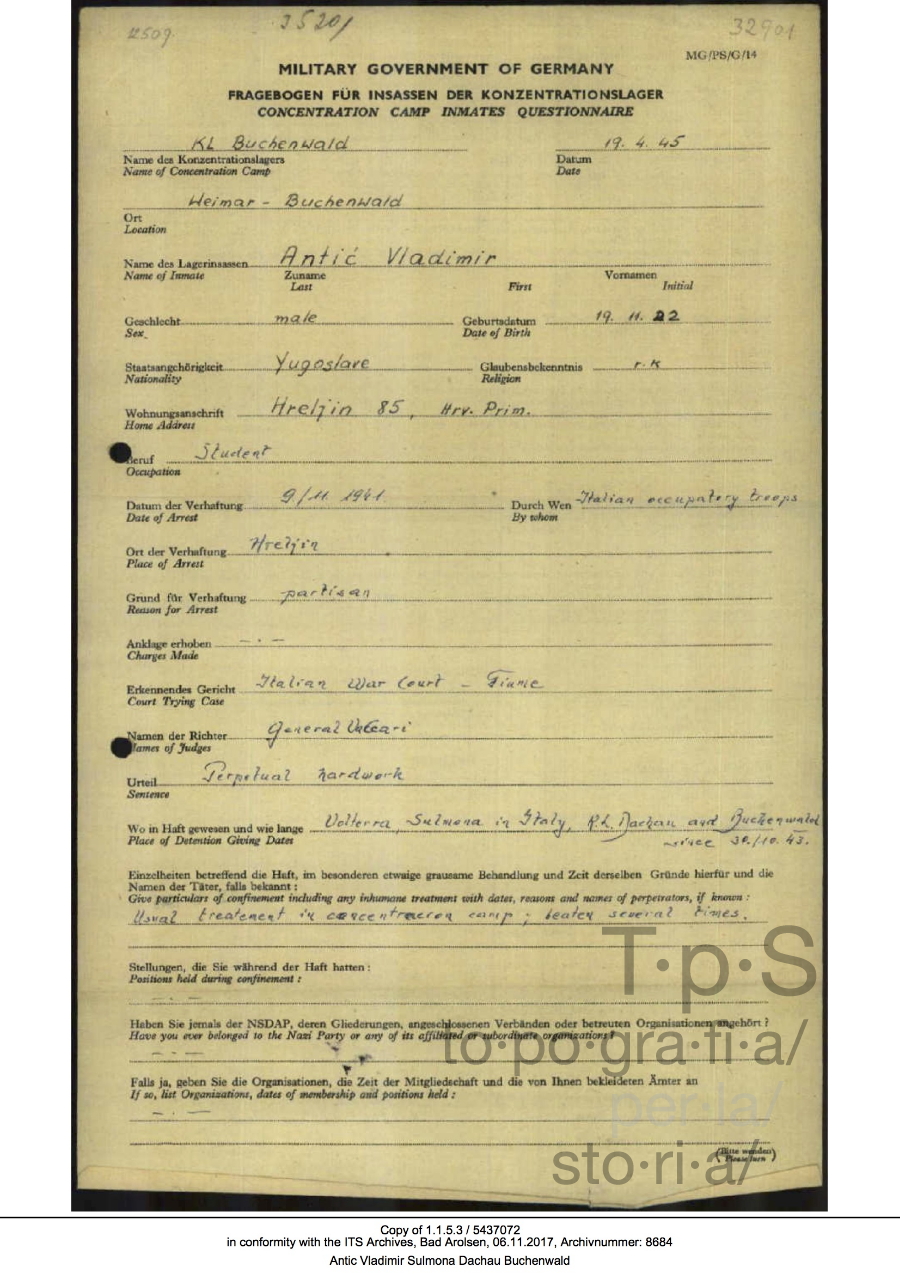 12509
35201
32901
MG/PS/G/14
MILITARY GOVERNMENT OF GERMANY
FRAGEBOGEN FÜR INSASSEN DER KONZENTRATIONSLAGER
CONCENTRATION CAMP INMATES QUESTIONNAIRE
KL Buchenwald 19. 4. 45
Name des Konzentrationslagers Datum
Name of Concentration Camp Date
Weimar - Buchenwald
Ort
Location
Name des Lagerinsassen Antić Vladimir
Name of Inmate Zuname Vornamen
Last First Initial
Geschlecht male Geburtsdatum 19. 11. 22
Sex Date of Birth
Staatsangehörigkeit Yugoslave Glaubensbekenntnis r. K
Nationality Religion
Wohnungsanschrift Hreljin 85, Hrv. Prim.
Home Address
Beruf Student
Occupation
Datum der Verhaftung 9/11. 1941. Durch Wen Italian occupatory troops
Date of Arrest By whom
Ort der Verhaftung Hreljin
Place of Arrest
Grund für Verhaftung partisan
Reason for Arrest
Anklage erhoben — · —
Charges Made
Erkennendes Gericht Italian War Court - Fiume
Court Trying Case
Namen der Richter General
Names of Judges
Urteil Perpetual hardwork
Sentence
Wo in Haft gewesen und wie lange Volterra, Sulmona in Italy, Dachau and Buchenwald
Place of Detention Giving Dates since 30./10. 43.
Einzelheiten betreffend die Haft, im besonderen etwaige grausame Behandlung und Zeit derselben Gründe hierfür und die
Namen der Täter, falls bekannt :
Give particulars of confinement including any inhumane treatment with dates, reasons and names of perpetrators, if known :
Usual treatement in concentracion camp ; beaten several times.
Stellungen, die Sie während der Haft hatten :
Positions held during confinement :
— · —
Haben Sie jemals der NSDAP, deren Gliederungen, angeschlossenen Verbänden oder betreuten Organisationen angehört ?
Have you ever belonged to the Nazi Party or any of its affiliated or subordinate organizations ?
— · —
Falls ja, geben Sie die Organisationen, die Zeit der Mitgliedschaft und die von Ihnen bekleideten Ämter an
If so, list Organizations, dates of membership and positions held :
— · —
(Bitte wenden)
Please turn
T·p·S
to·po·gra·fi·a/
per·la/
sto·ri·a/
Copy of 1.1.5.3 / 5437072
in conformity with the ITS Archives, Bad Arolsen, 06.11.2017, Archivnummer: 8684
Antic Vladimir Sulmona Dachau Buchenwald